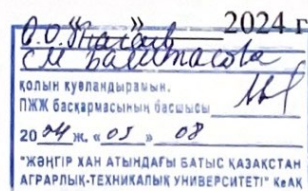 « » 2024 г
қолын куәландырамын.
ПЖЖ басқармасының басшысы
2024 ж. «05» 08
"ЖӘҢГІР ХАН АТЫНДАҒЫ БАТЫС ҚАЗАҚСТАН
АГРАРЛЫҚ-ТЕХНИКАЛЫҚ УНИВЕРСИТЕТІ" КеАҚ